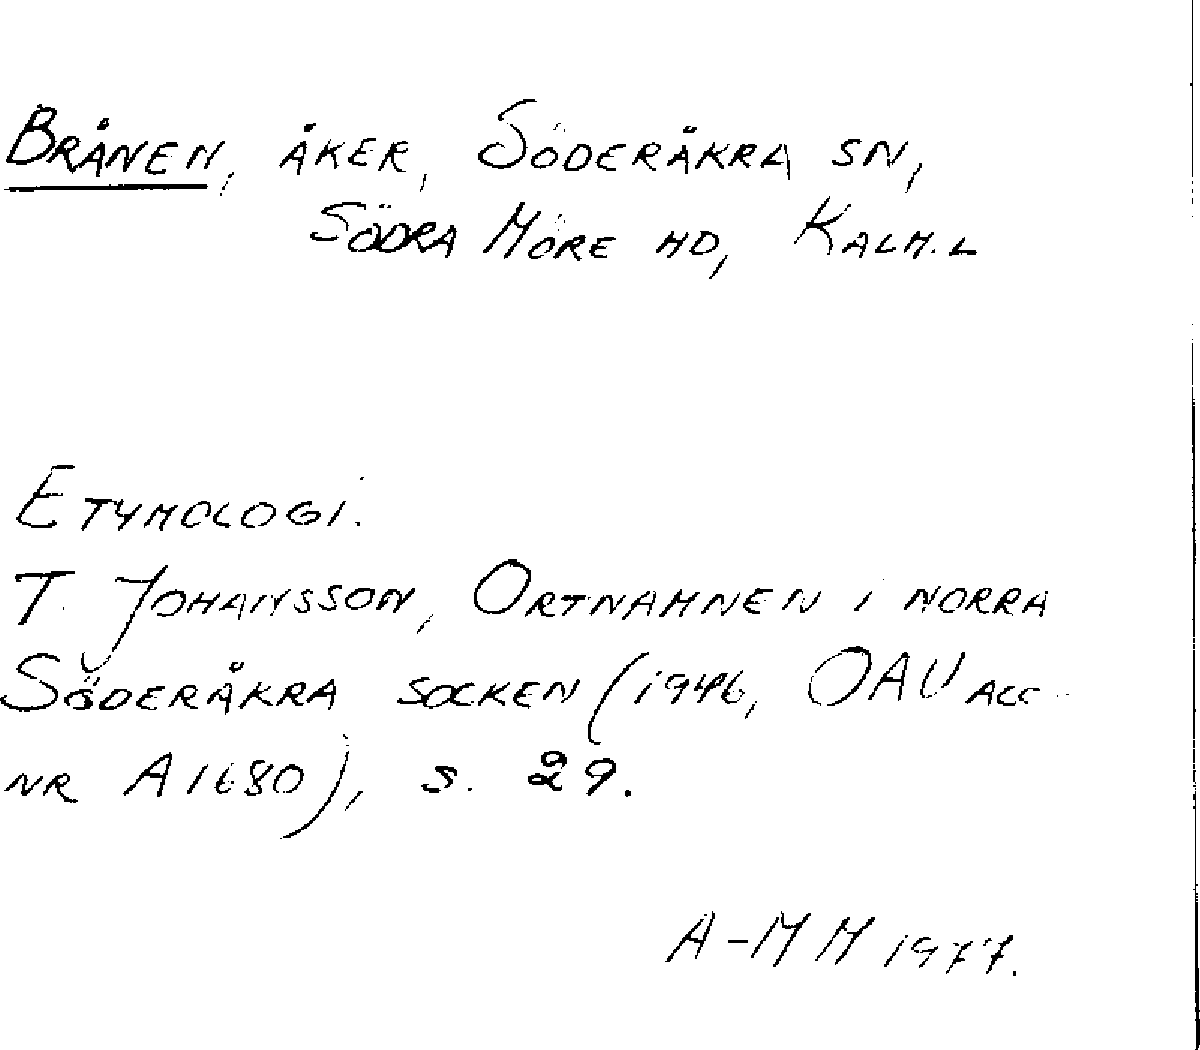 BRÅNEN, ÅKER, SÖDERÅKRA SN,
SÖDRA MÖRE HD, KALM. L
ETYMOLOGI.
T. JOHANSSON, ORTNAMNEN I NORRA
SÖDERÅKRA SOCKEN (1946, OAU ACC-
NR A1680), S. 29.
A-MM 1977.